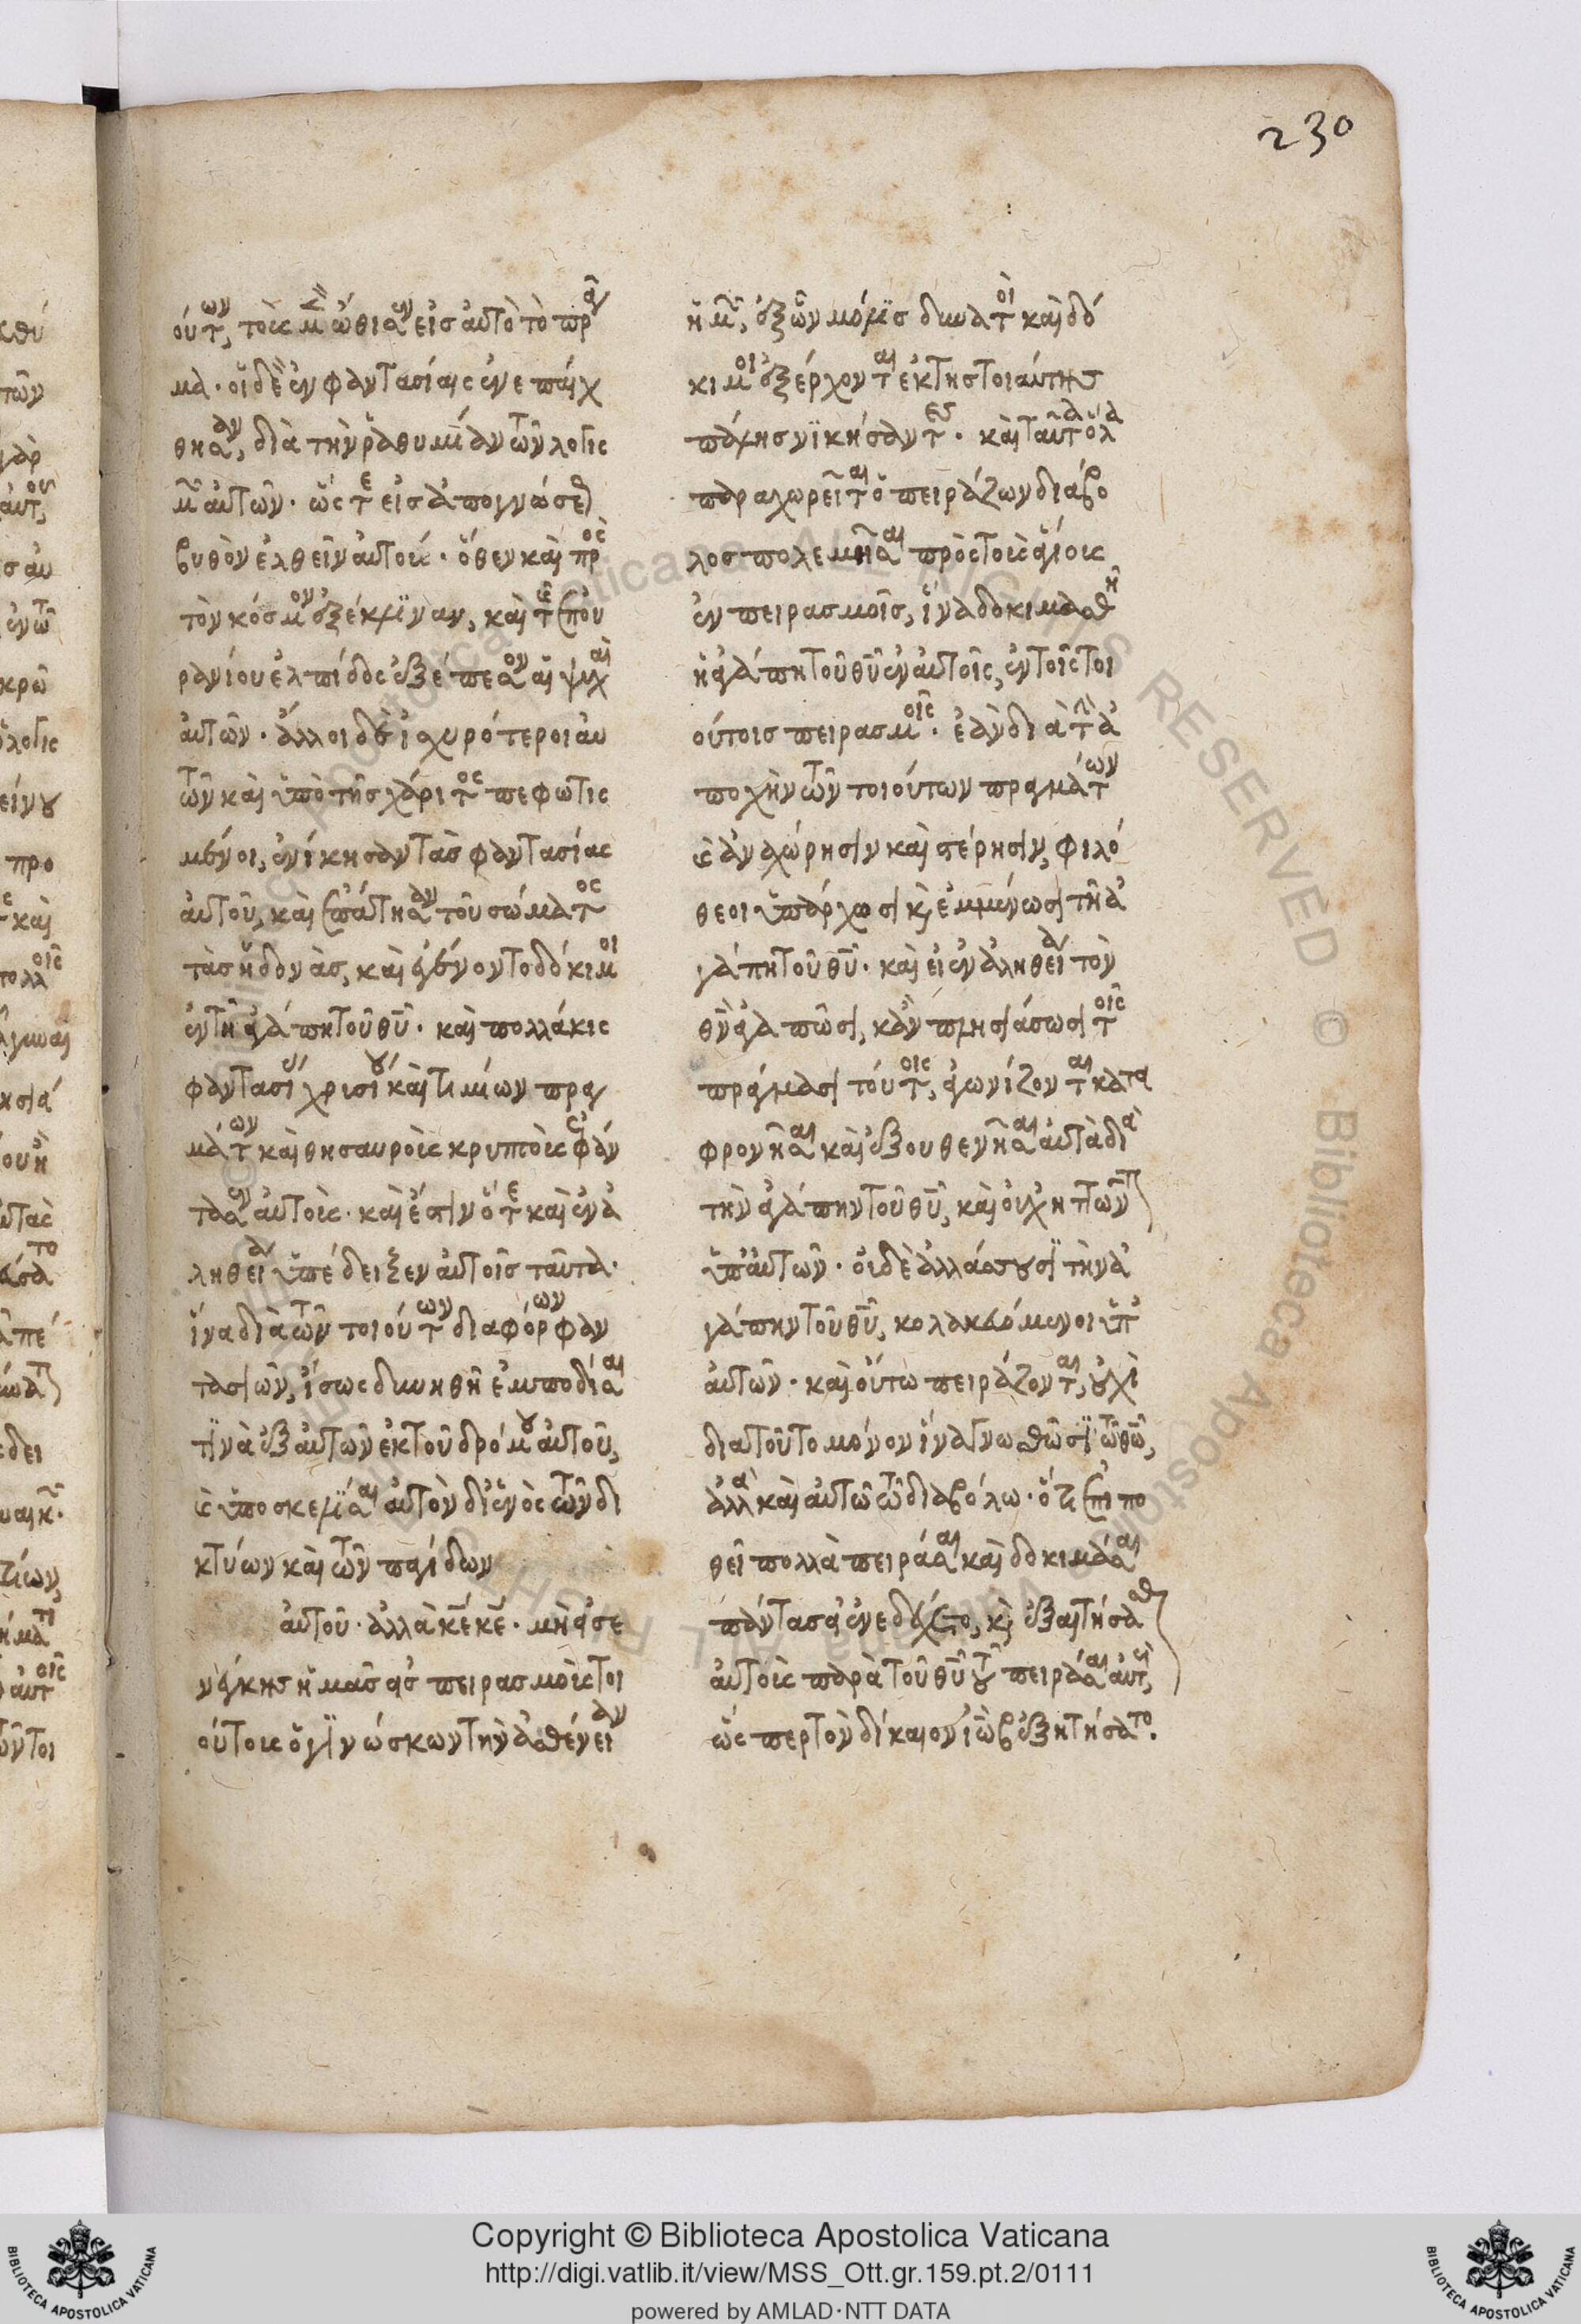 230
ούτων, τοῖς μὴ ὠθισθῆναι εἰς αὐτὸ τὸ πρᾶγ
μα· οἱ δὲ ἐν φαντασίαις ἐνεπαίχ
θησαν, διὰ τὴν ῥαθυμίαν τῶν λογισ
μῶν αὐτῶν· ὥστε εἰς ἀπογνώσεως
βυθὸν ἐλθεῖν αὐτούς· ὅθεν καὶ πρὸς
τὸν κόσμον ἐξέκλιναν, καὶ τῆς ἐπου
ρανίου ἐλπίδος ἐξέπεσον αἱ ψυχαὶ
αὐτῶν· ἄλλοι δὲ ἰσχυρότεροι αὐ
τῶν καὶ ὑπὸ τῆς χάριτος πεφωτισ
μένοι, ἐνίκησαν τὰς φαντασίας
αὐτοῦ, καὶ ἐπάτησαν τοῦ σώματος
τὰς ἡδονὰς, καὶ ἐγένοντο δόκιμοι
ἐν τῇ ἀγάπῃ τοῦ θ̅υ̅· καὶ πολλάκις
φαντασίαν χρυσίου καὶ τιμίων πραγ
μάτων καὶ θησαυροὺς κρυπτοὺς ἐφάν
τασεν αὐτοῖς· καὶ ἔστιν ὅτε καὶ ἐν ἀ
ληθεία ὑπέδειξεν αὐτοῖς ταῦτα·
ἵνα διὰ τῶν τοιούτων διαφόρων φαν
τασιῶν, ἴσως δυνηθῆ ἐμποδίσαι
τινὰ ἐξ αὐτῶν ἐκ τοῦ δρόμου αὐτοῦ,
καὶ ὑποσκελίσαι αὐτὸν δι' ἑνὸς τῶν δι
κτύων καὶ τῶν παγίδων
αὐτοῦ· ἀλλὰ κ̅ε̅ κ̅ε̅· μὴ εἰσε
νέγκης ἡμᾶς εἰς πειρασμοὺς τοι
ούτους ὁ γινώσκων τὴν ἀσθένειαν
ἡμῶν, ἐξ ὧν μόλις δυνατοὶ καὶ δό
κιμοι ἐξέρχονται ἐκ τῆς τοιαύτης
πάλης νικήσαντες· καὶ ταῦτα ὅλα
παραχωρεῖται ὁ πειράζων διάβο
λος πολεμῆσαι πρὸς τοὺς ἁγίους
ἐν πειρασμοῖς, ἵνα δοκιμασθῆ
ἡ ἀγάπη τοῦ θ̅υ̅ ἐν αὐτοῖς, ἐν τοῖς τοι
ούτοις πειρασμοῖς· ἐὰν διὰ τὴν ἀ
ποχὴν τῶν τοιούτων πραγμάτων
καὶ ἀναχώρησιν καὶ στέρησιν, φιλό
θεοι ὑπάρχωσι καὶ ἐμμένωσι τῆ ἀ
γάπη τοῦ θ̅υ̅· καὶ εἰ ἐν ἀληθεία τὸν
θ̅ν̅ ἀγαπῶσι, κἂν πλησιάσωσι τοῖς
πράγμασι τούτοις, ἀγωνίζονται κατα
φρονῆσαι καὶ ἐξουθενῆσαι αὐτὰ διὰ
τὴν ἀγάπην τοῦ θ̅υ̅, καὶ οὐχ ἡττῶνται
ὑπ' αὐτῶν· οὐδὲ ἀλλάσσουσι τὴν ἀ
γάπην τοῦ θ̅υ̅, κολακευόμενοι ὑπ'
αὐτῶν· καὶ οὕτω πειράζονται, οὐχὶ
διὰ τοῦτο μόνον ἵνα γνωσθῶσι τῶ θ̅ω̅,
ἀλλὰ καὶ αὐτῶ τῶ διαβόλω· ὅτι ἐπιπο
θεῖ πολλὰ πειράσαι καὶ δοκιμάσαι
πάντας εἰ ἐνεδέχετο, καὶ ἐξαιτήσασθαι
αὐτοὺς παρὰ τοῦ θ̅υ̅ τοῦ πειράσαι αὐτούς,
ὥσπερ τὸν δίκαιον ἰὼβ ἐξητήσατο.
© Biblioteca Apostolica Vaticana ALL RIGHTS RESERVED
Copyright © Biblioteca Apostolica Vaticana
http://digi.vatlib.it/view/MSS_Ott.gr.159.pt.2/0111
powered by AMLAD·NTT DATA
BIBLIOTECA APOSTOLICA VATICANA
BIBLIOTECA APOSTOLICA VATICANA